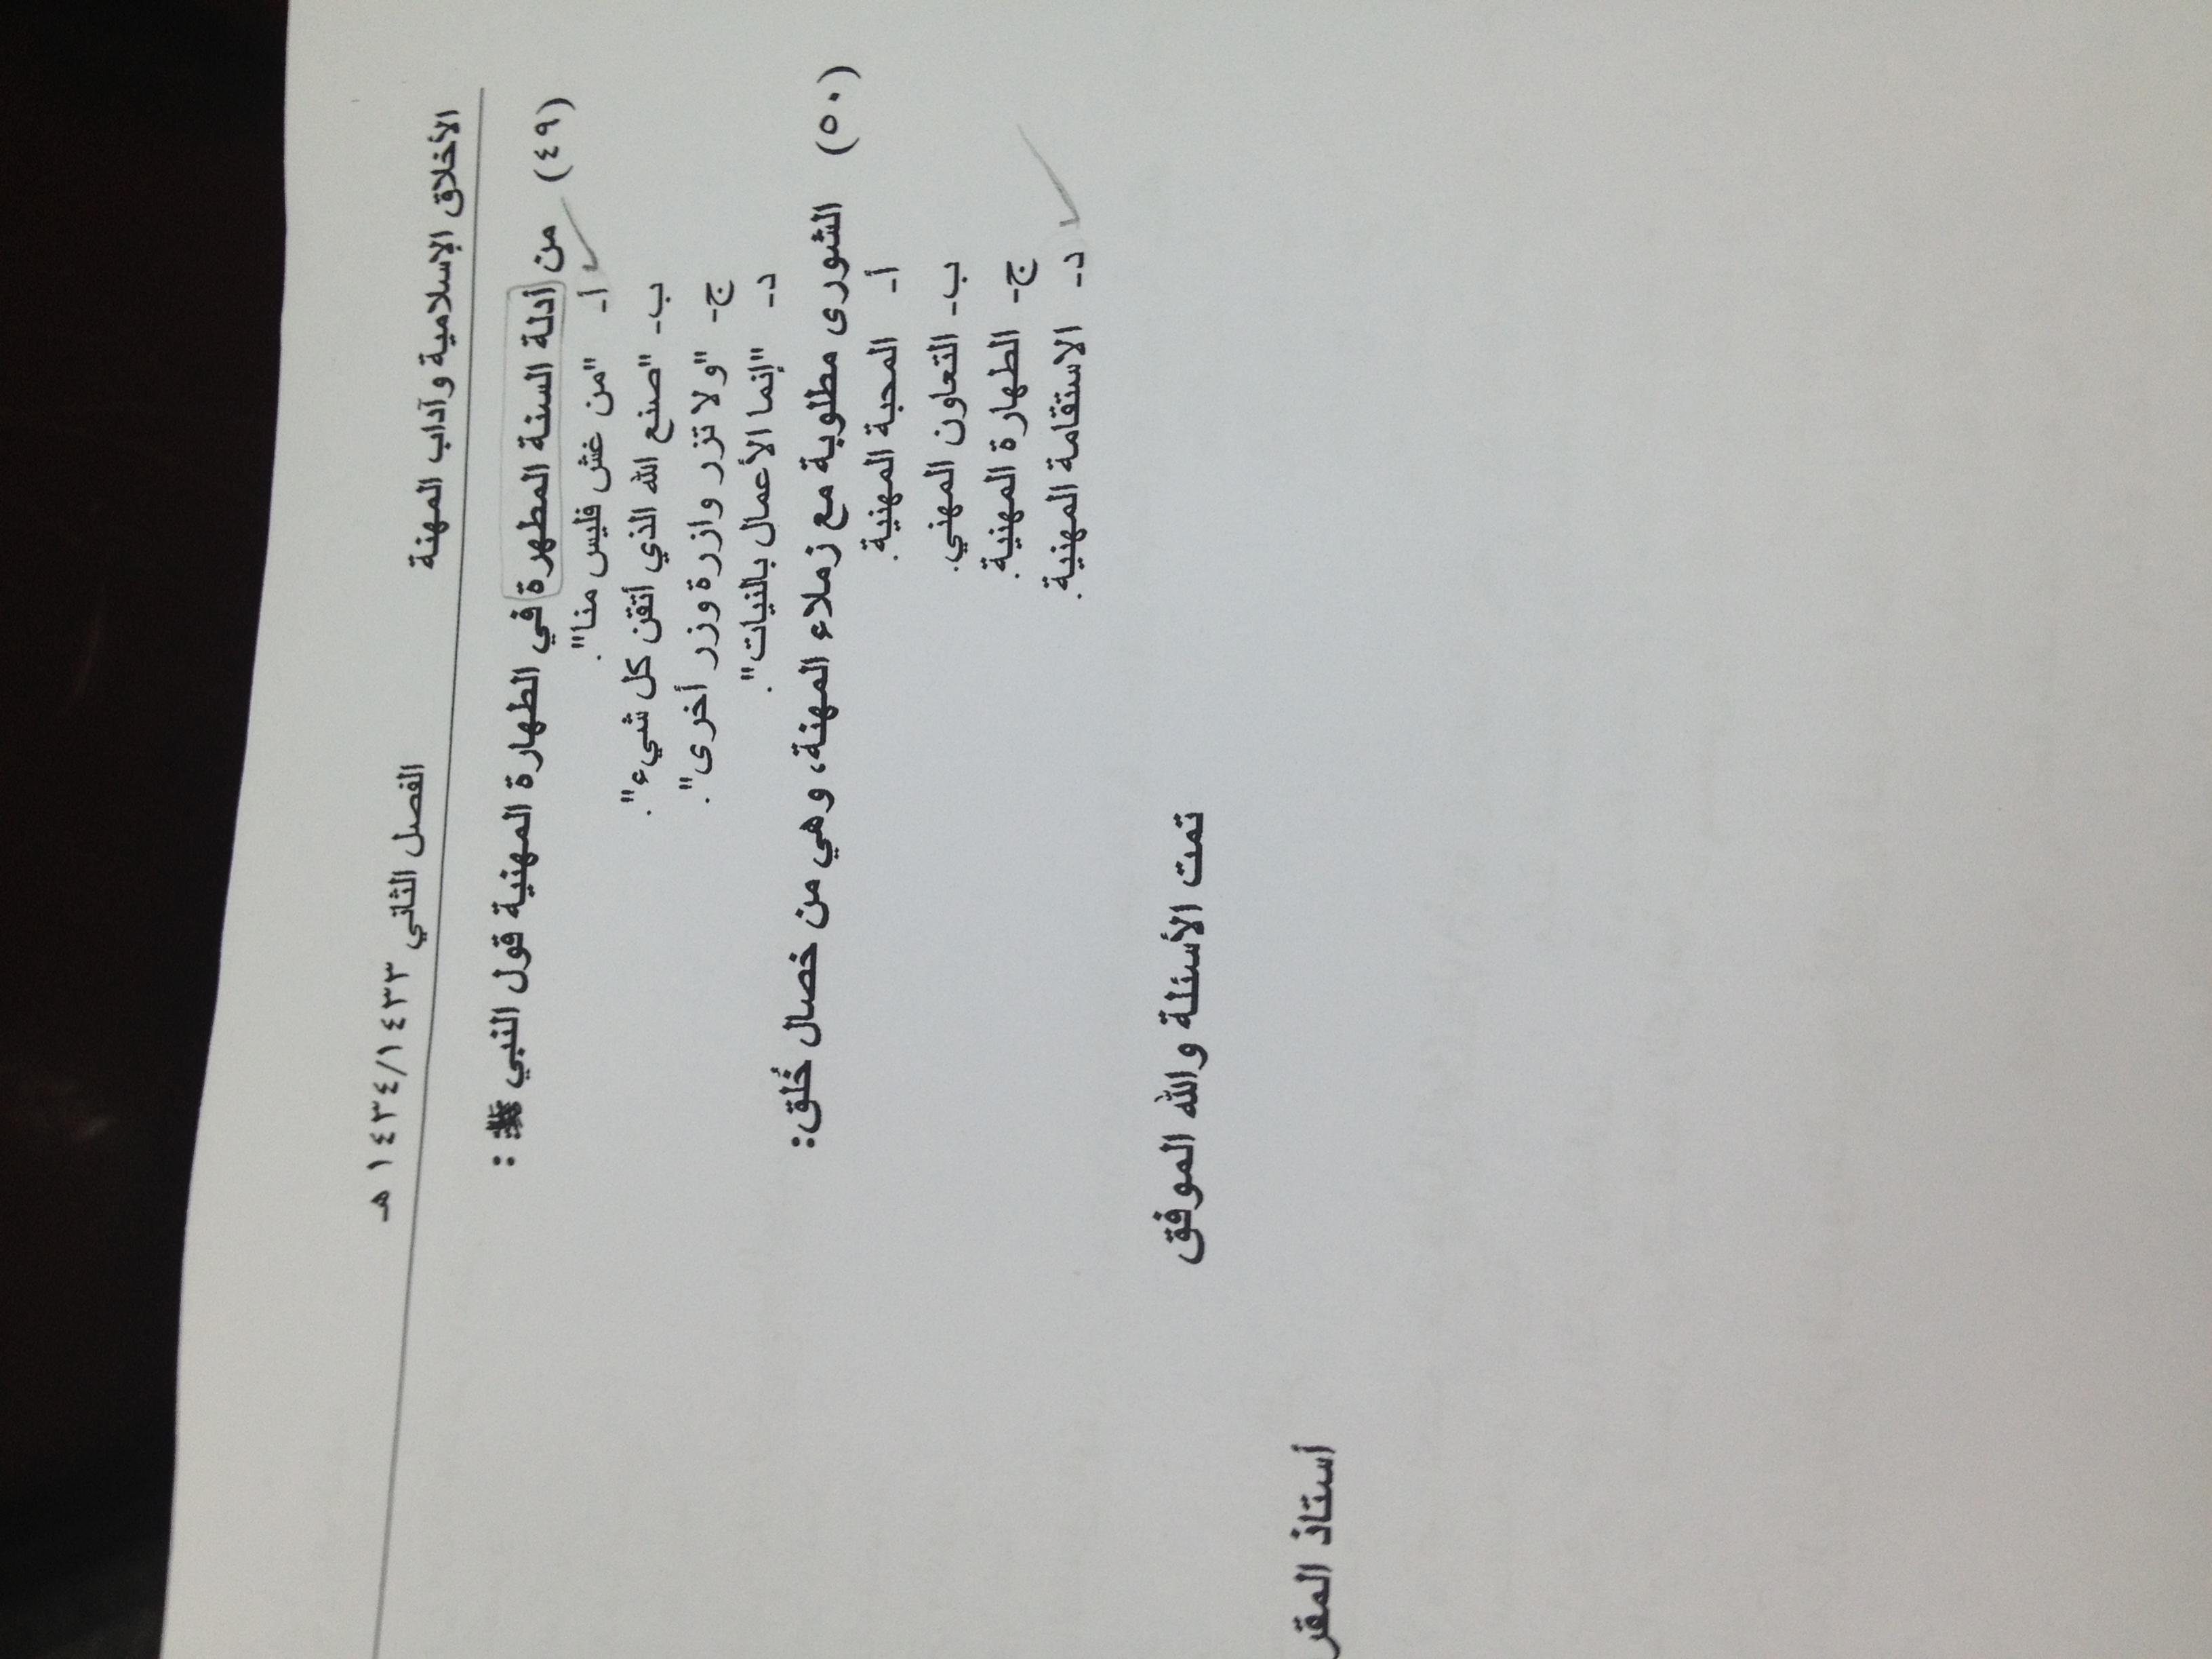 الأخلاق الإسلامية وآداب المهنة الفصل الثاني ١٤٣٤/١٤٣٣ هـ
(٤٩) من أدلة السنة المطهرة في الطهارة المهنية قول النبي ﷺ :
أ- "من غش فليس منا".
ب- "صنع الله الذي أتقن كل شيء".
ج- "ولا تزر وازرة وزر أخرى".
د- "إنما الأعمال بالنيات".
(٥٠) الشورى مطلوبة مع زملاء المهنة، وهي من خصال خُلق:
أ- المحبة المهنية.
ب- التعاون المهني.
ج- الطهارة المهنية.
د- الاستقامة المهنية.
تمت الأسئلة والله الموفق
أستاذ المقر